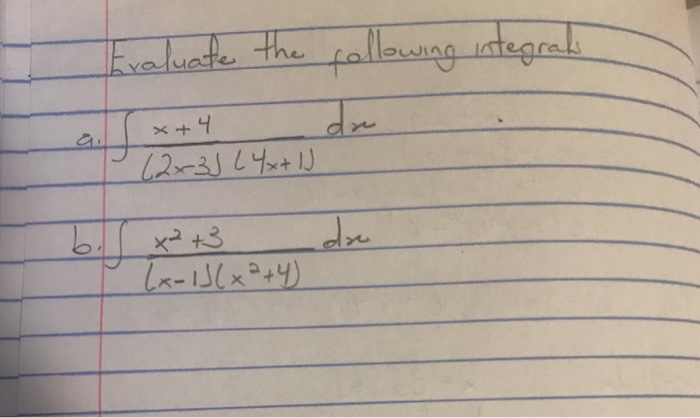 Evaluate the following integrals
a. ∫ x+4 / (2x-3)(4x+1) dx
b. ∫ x²+3 / (x-1)(x²+4) dx